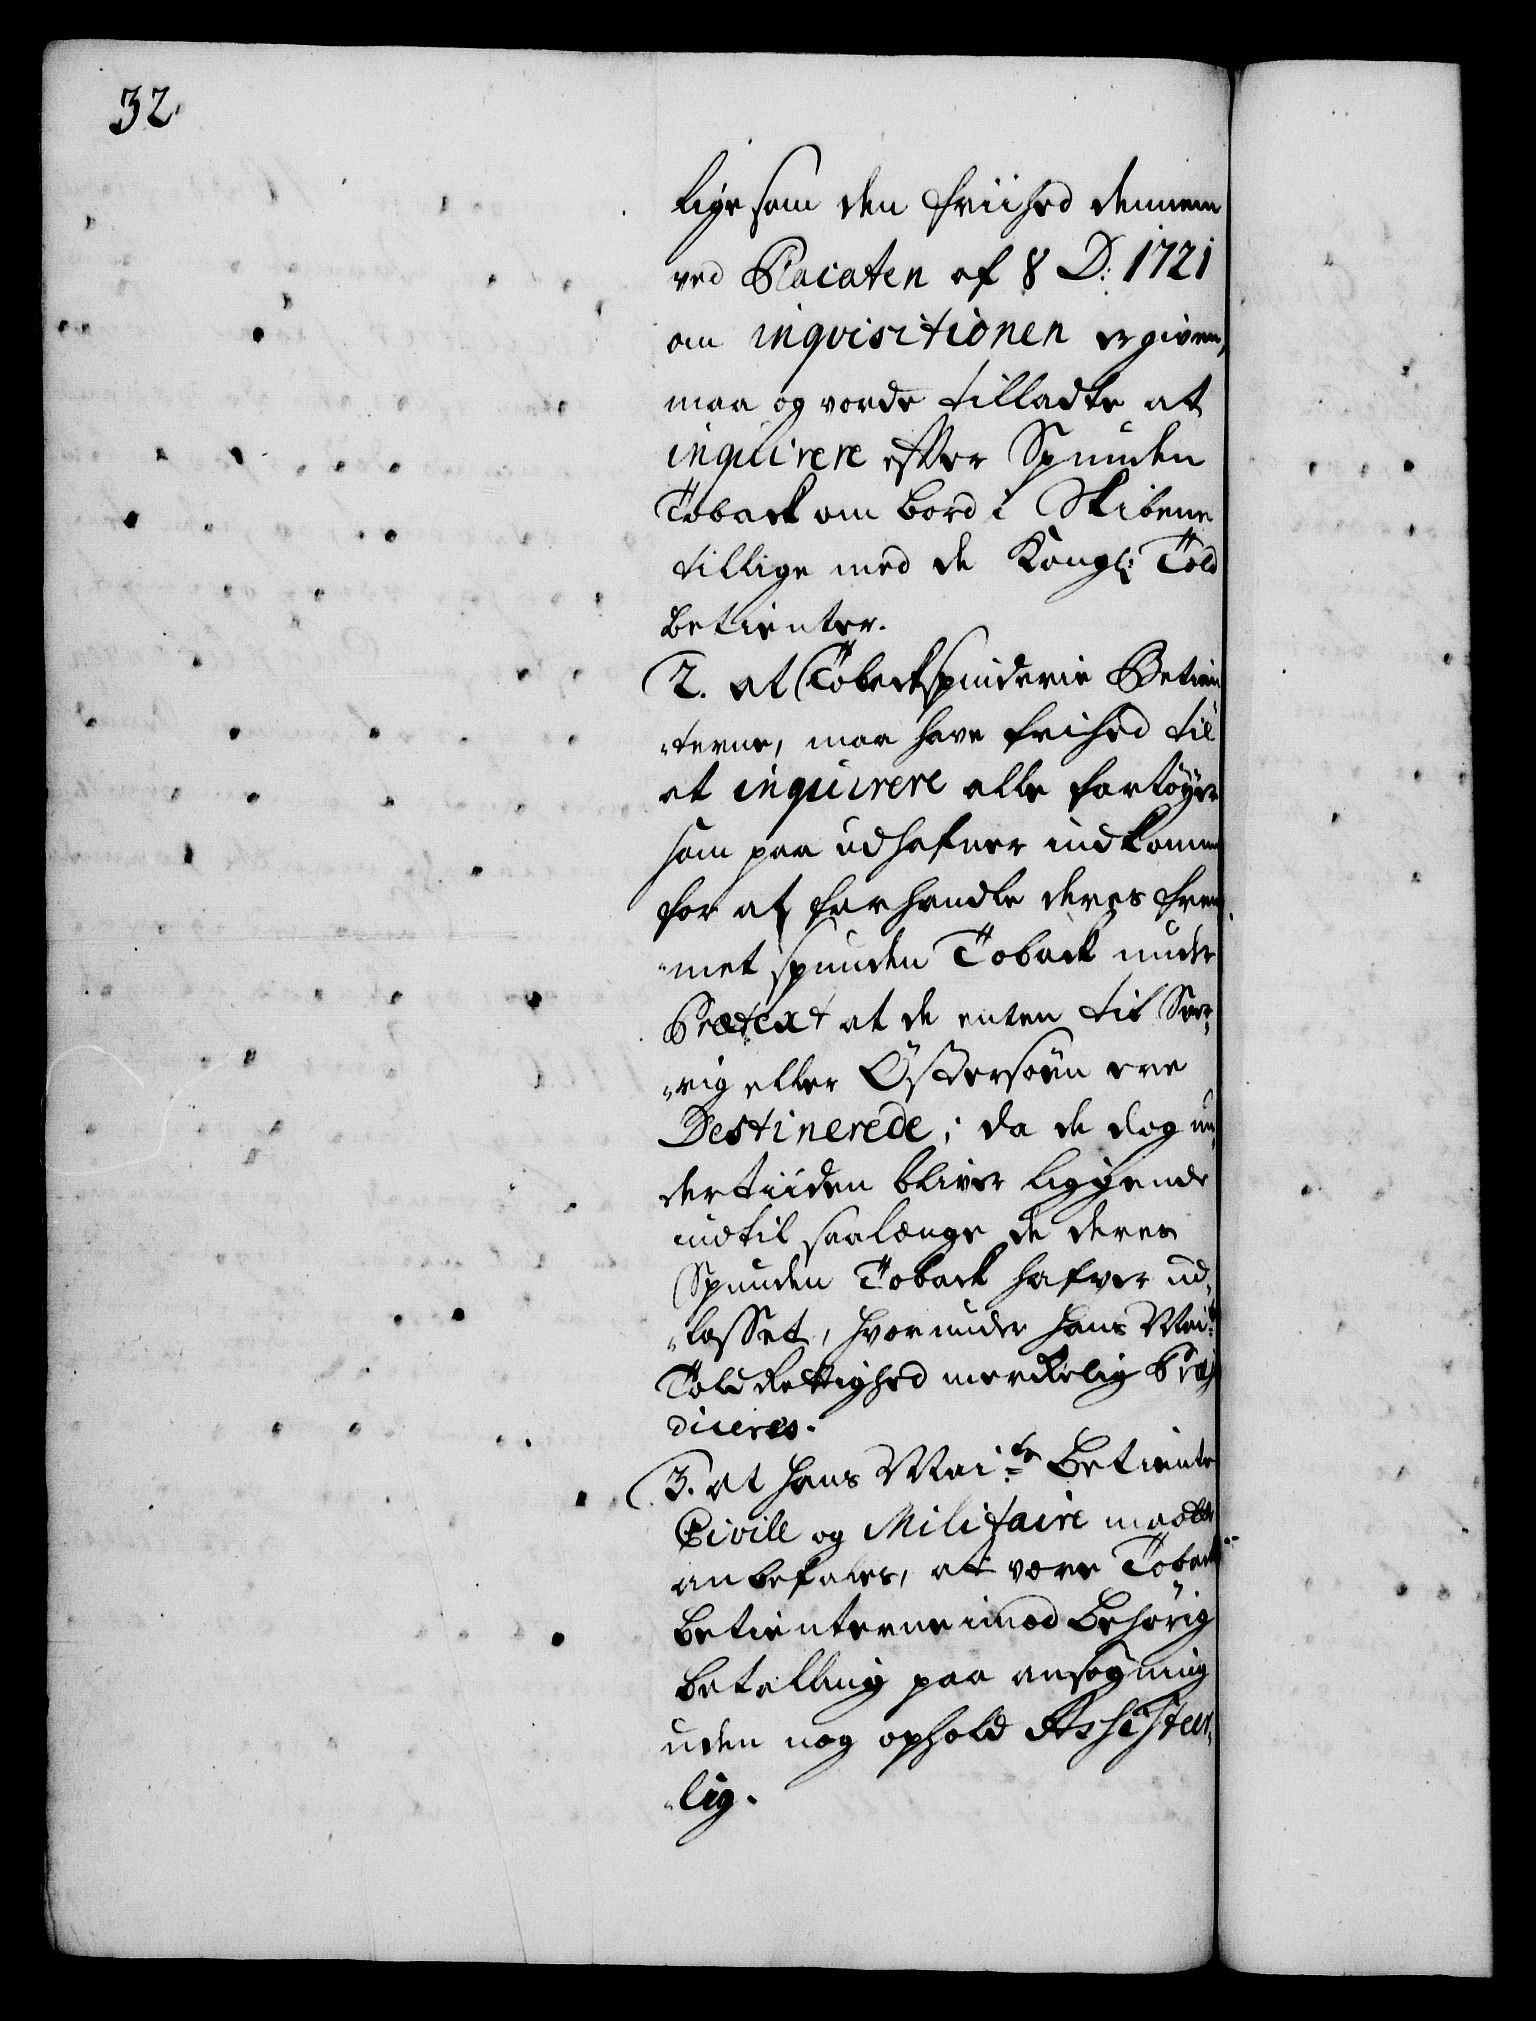 32.
lige som den friihed dennem
ved Placaten af 8 D: 1721
om inqvisitionen er given,
maa og vorde tilladte at
inqvirere efter Spunden
Toback om bord i Skibene
tillige med de Kongl: Told
betienter.
2. at Tobackspinderie Betien
-terne, maa have frihed til
at inqvirere alle fartøyer
som paa udhafner indkomme
for at forhandle deres frem
-met spunden Toback under
Prætext at de enten til Svær-
-rig eller Østersøen ere
Destinerede; da de dog un-
dertiiden bliver liggende
indtil saalænge de deres
Spunden Toback hafver ud-
-losset, hvorunder hans Mai:ts
Told Rettighed merckelig Præju
diceres.
3. at hans Mai:ts Betiente
Civile og Militaire maatte
anbefales, at være Toback
betienterne imod behørig
betalling paa ansøgning
uden nog ophold Assisteer-
-lig.